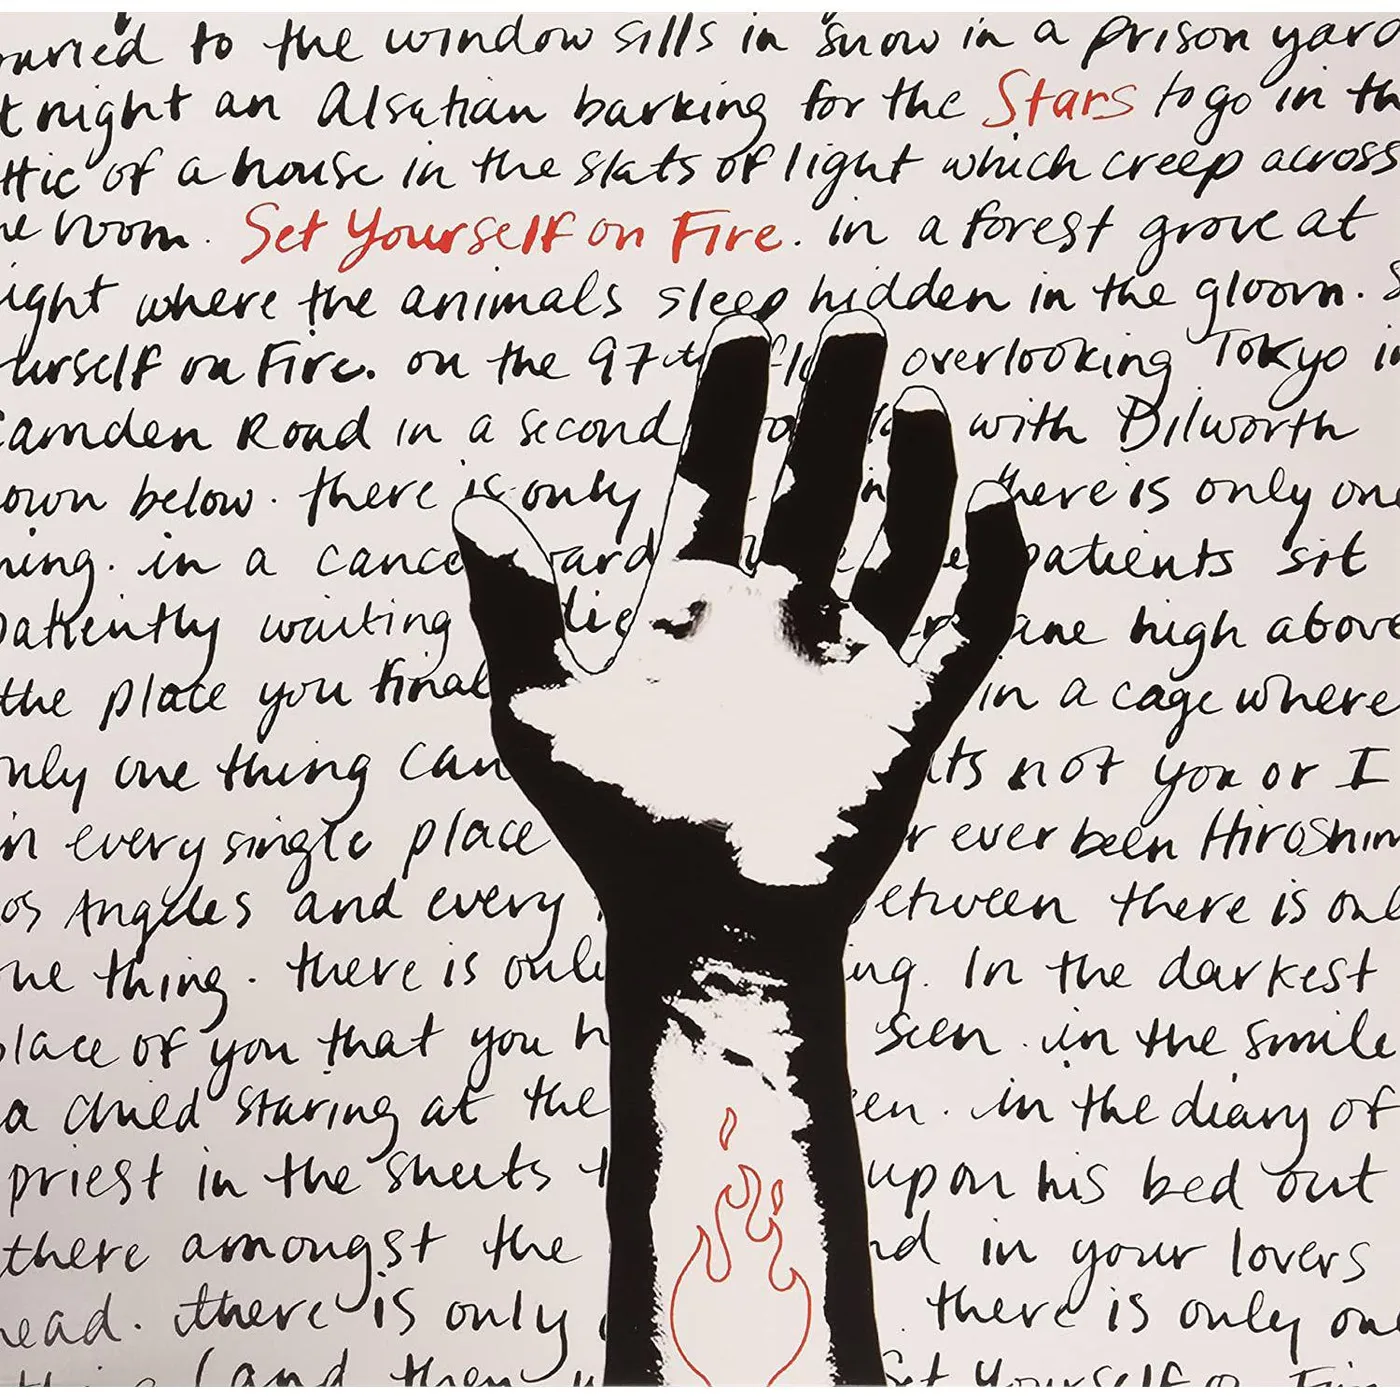 to the window sills in snow in a prison yard
night an Alsatian barking for the Stars to go in the
of a house in the slats of light which creep across
room. Set Yourself on Fire. in a forest grove at
where the animals sleep hidden in the gloom.
on Fire. on the 97th overlooking Tokyo in
Camden Road in a second with Dilworth
below. there is only there is only one
in a patients sit
patiently waiting high above
the place you in a cage where
only one thing can its not you or I
in every single place ever been
Angeles and every between there is
thing. there is In the darkest
place of you that you seen. in the smile
a child staring at the in the diary of
priest in the sheets upon his bed out
there amongst the in your lovers
there is only there is only one
(and then Set Yourself